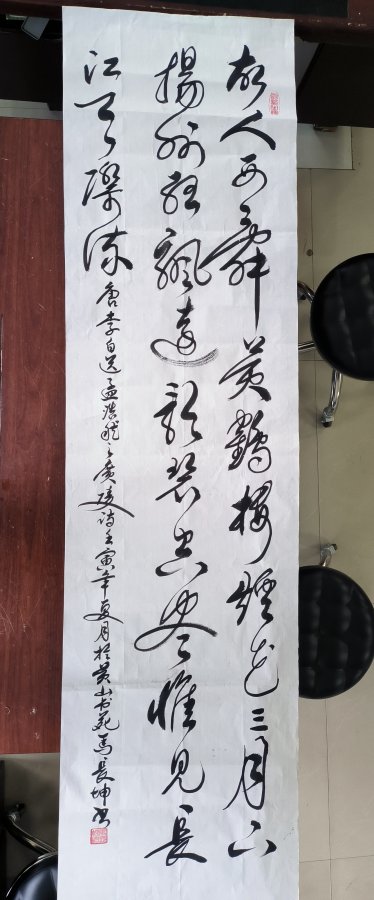 故人西辭黃鶴樓煙花三月下
揚州孤颿遠影碧空盡惟見長
江天際流 唐李白送孟浩然之廣陵詩壬寅年夏月於黃山书苑馬長坤书